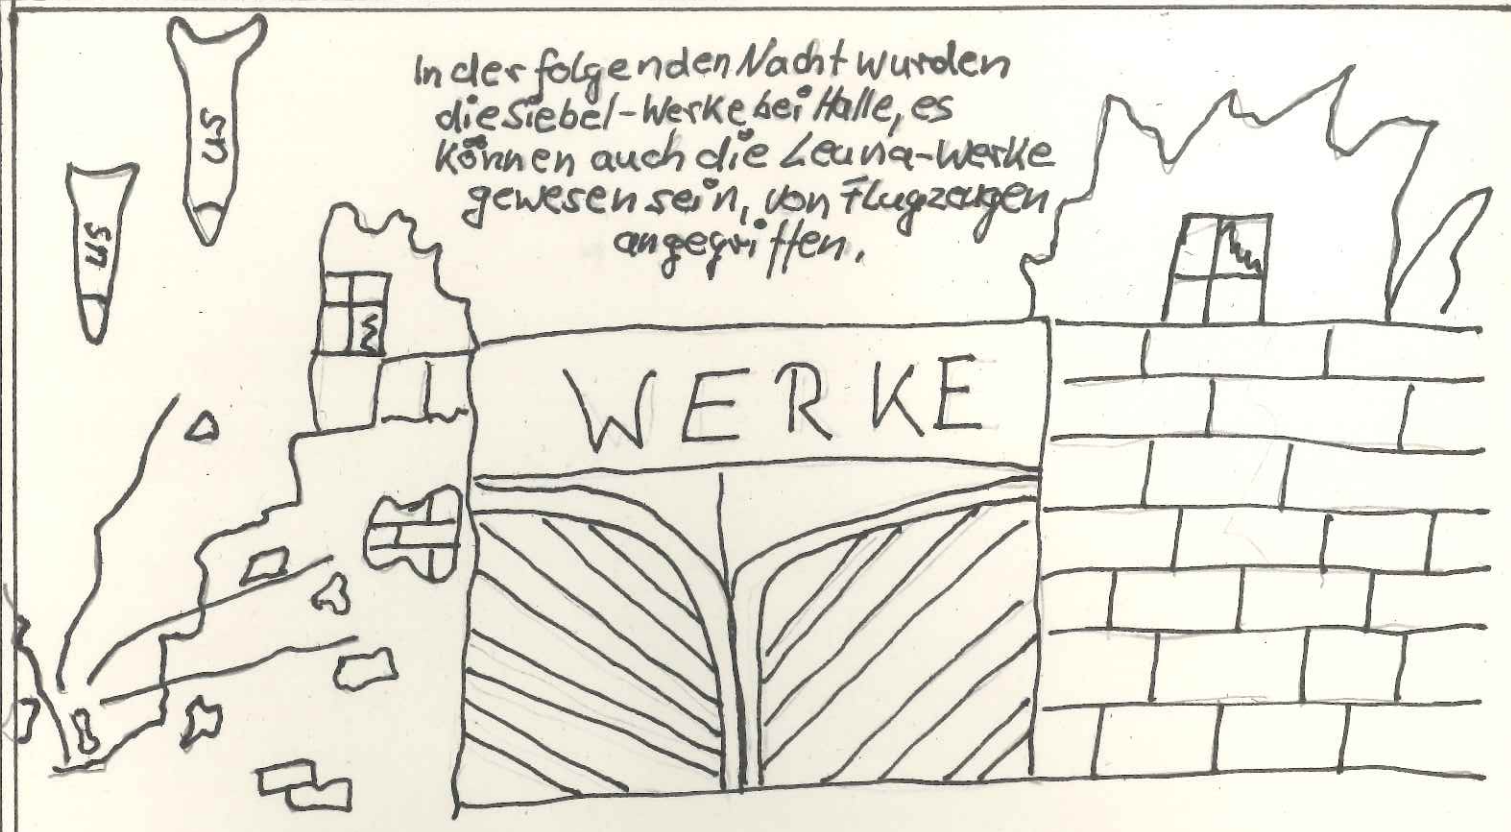 US
US
In der folgenden Nacht wurden
die Siebel-Werke bei Halle, es
können auch die Leuna-Werke
gewesen sein, von Flugzeugen
angegriffen.
WERKE